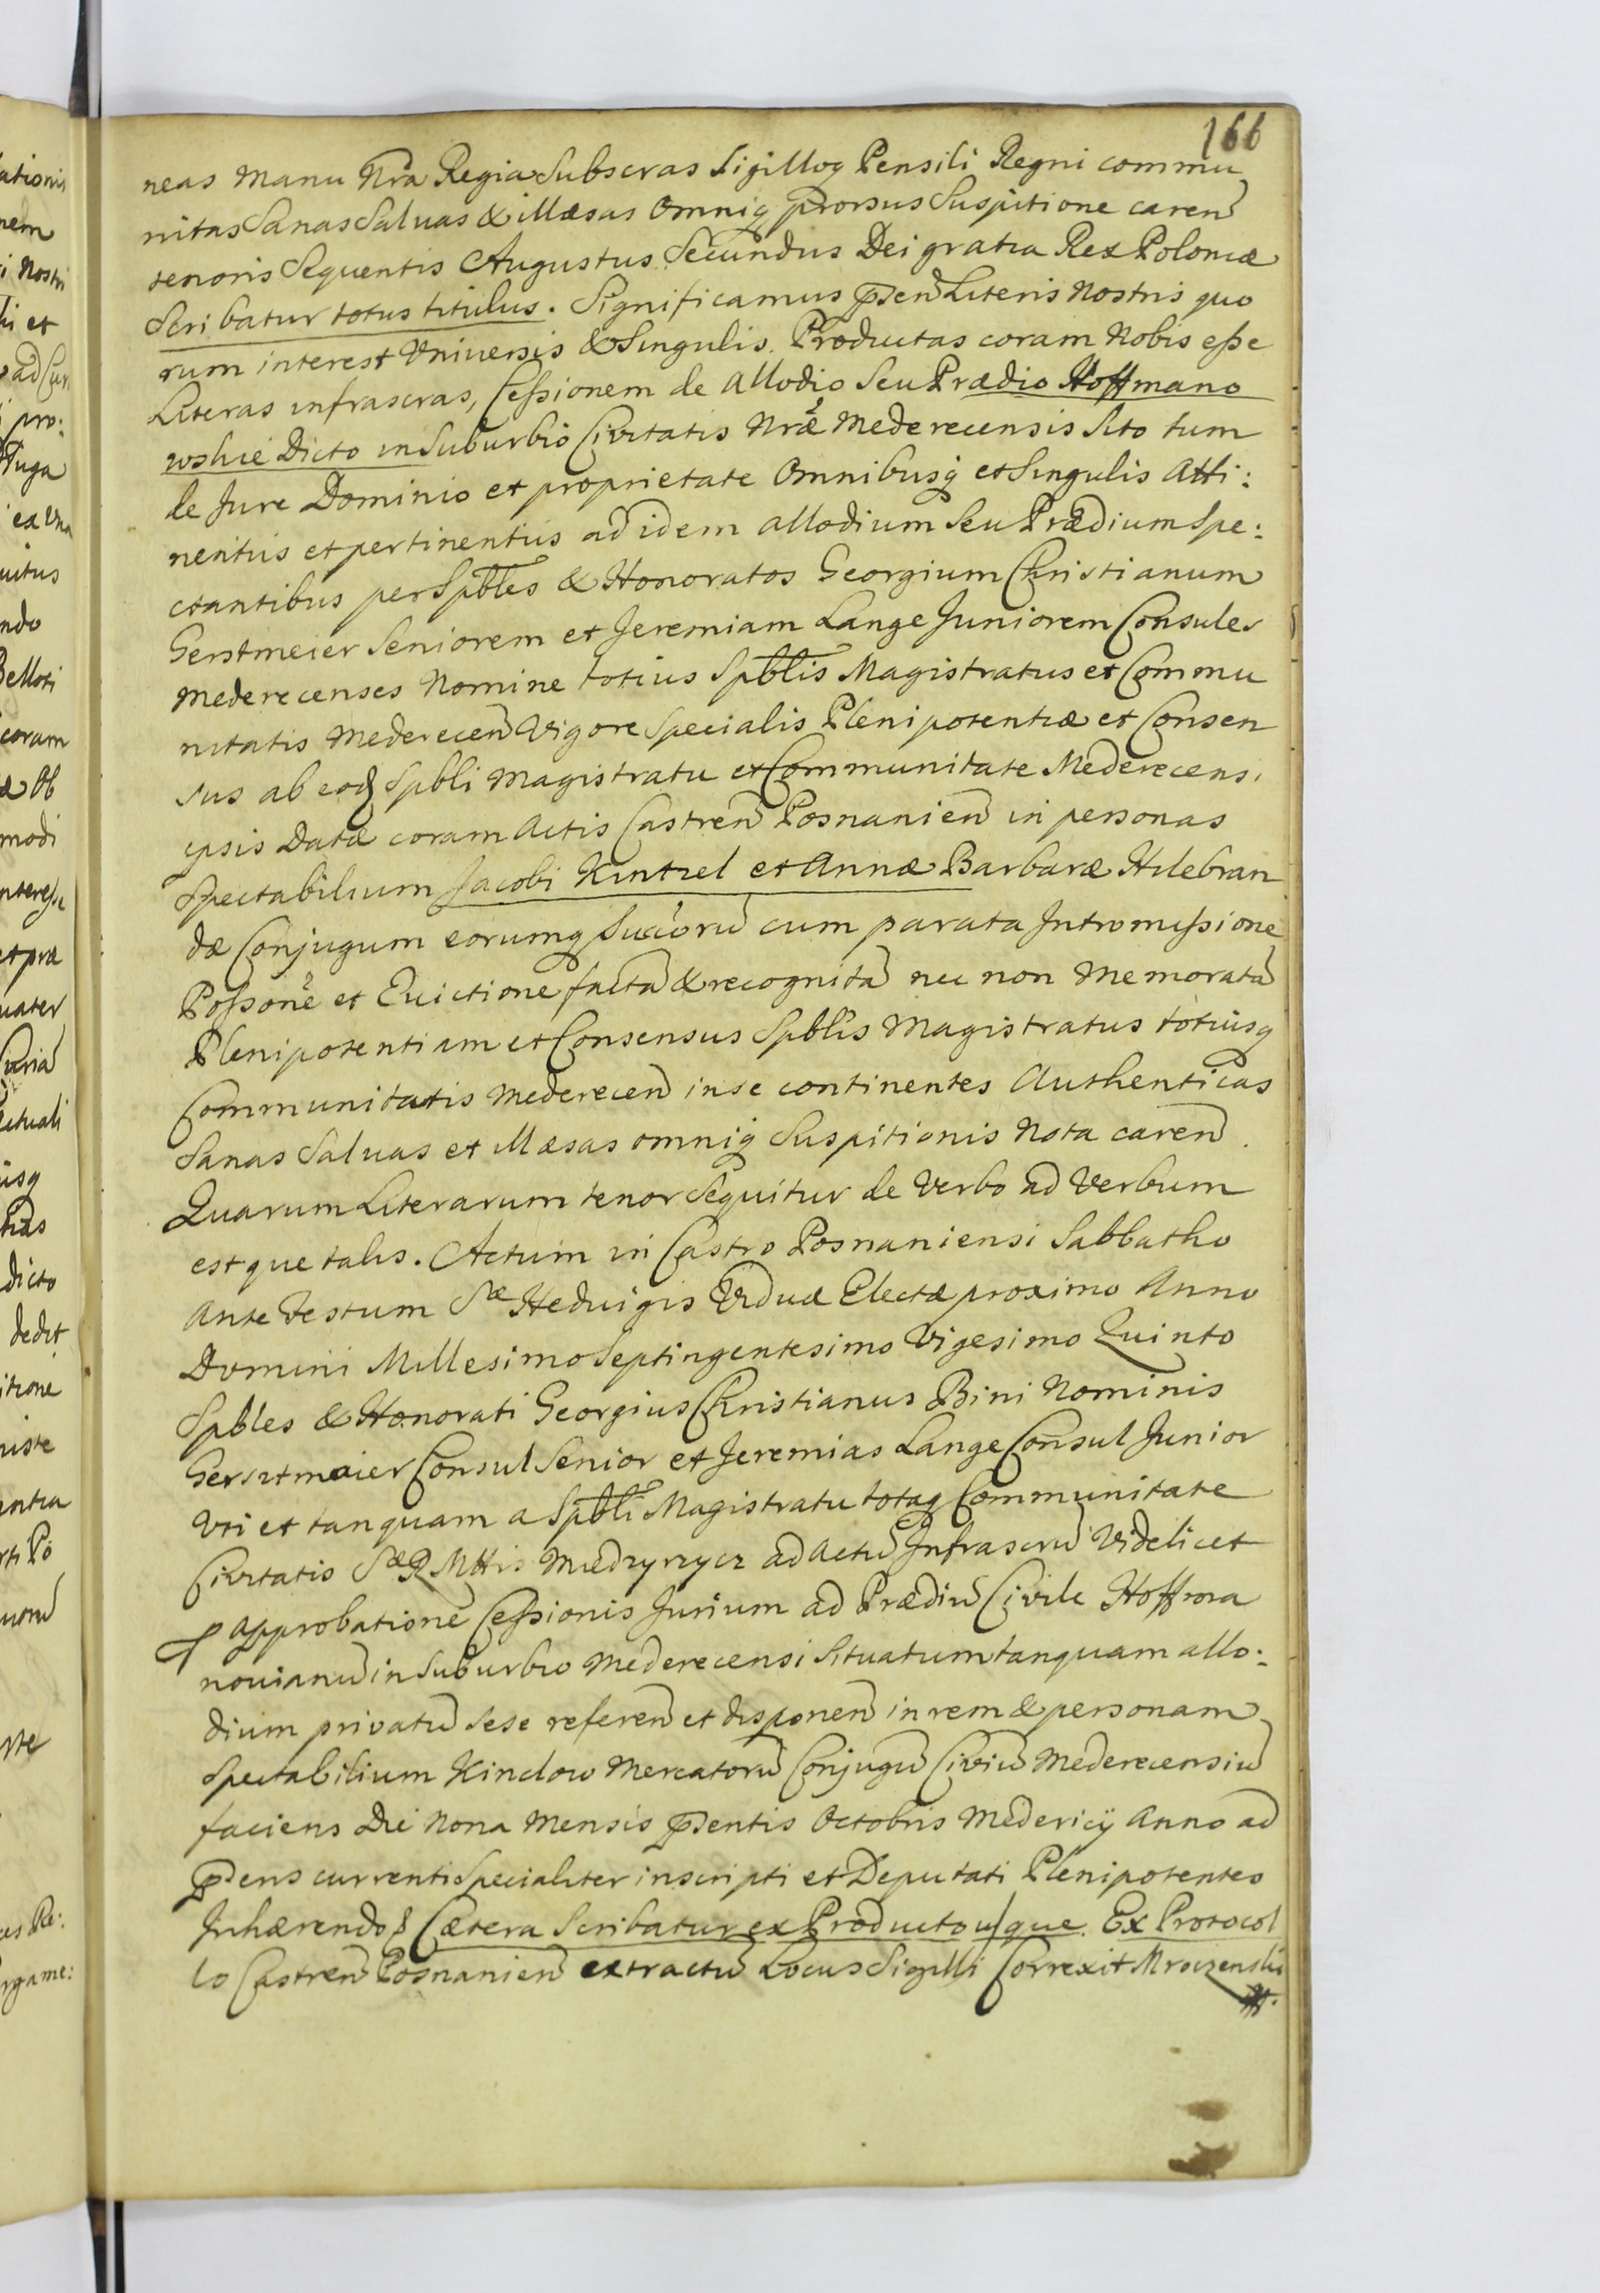 166
neas manu Nrã Regia Subscras Sigilloq Pensili Regni commu
nitas Sanas Saluas & illæsas Omniq prorsus Suspitione caren
tenoris Sequentis Augustus Secundus Dei gratia Rex Poloniæ
Scribatur totus titulus. Significamus pñen Literis Nostris quo
rum interest Vniuersis & Singulis. Productas coram Nobis eſse
Literas infrascras, Ceſsionem de Allodio Seu Prædio Hoffmano
wskie Dicto in Suburbio Civitatis Nræ Mederecensis Sito tum
de Jure Dominio et proprietate Omnibusq et Singulis Atti:
nentiis et pertinentiis ad idem Allodium Seu Prædium Spe:
ctantibus per Spbles & Honoratos Georgium Christianum
Gerstmeier Seniorem et Jeremiam Lange Juniorem Consules
Mederecenses Nomine totius Spblis Magistratus et Commu
nitatis Mederecen Vigore Specialis Plenipotentiæ et Consen
sus ab eod Spbli Magistratu et Communitate Mederecensi
ipsis Datæ coram Actis Castren Posnanien in personas
Spectabilium Jacobi Kintzel et Annæ Barbaræ Hilebran
dæ Conjugum eorumq Succorũ cum parata Intromiſsione
Poſsone et Euictione factã & recognitã nec non Memoratã
Plenipotentiam et Consensus Spblis Magistratus totiusq
Communitatis Mederecen in se continentes Authenticas
Sanas Saluas et illæsas omniq Suspitionis Nota caren.
Quarum Literarum tenor Sequitur de Verbo ad Verbum
estque talis. Actum in Castro Posnaniensi Sabbatho
Ante Festum Sæ Heduigis Viduæ Electæ proximo Anno
Domini Millesimo Septingentesimo Vigesimo Quinto
Spbles & Honorati Georgius Christianus Bini Nominis
Gerstmeier Consul Senior et Jeremias Lange Consul Junior
Vti et tanquam a Spbli Magistratu totaq Communitate
Civitatis Sæ R Mttis Miedzyrzycz ad Actũ Infrascrũ Videlicet
Approbationẽ Ceſsionis Jurium ad Prædiũ Civile Hoffma
nouianũ in Suburbio Mederecensi Situatum tanquam allo:
dium privatũ sese referen et disponen in rem & personam
Spectabilium Kinclow Mercatorũ Conjugũ Civiũ Mederecensiũ
faciens Die Nona Mensis pñentis Octobris Mederecij Anno ad
pñens currenti Specialiter inscripti et Deputati Plenipotentes
Inhærendo & Cætera Scribatur ex Producto uſque. Ex Protocol
lo Castren Posnanien extractũ Locus Sigilli Correxit Mroczenski